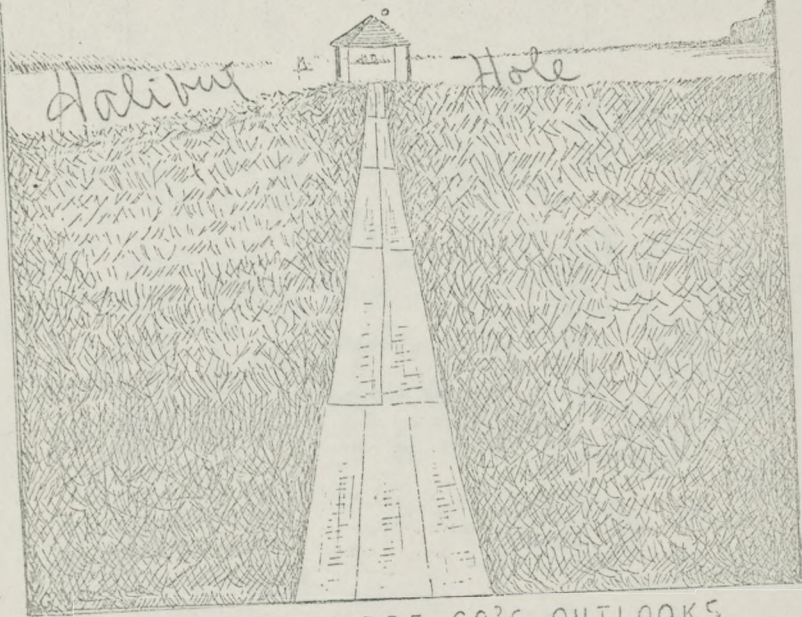 Halibut Hole
CO'S OUTLOOKS